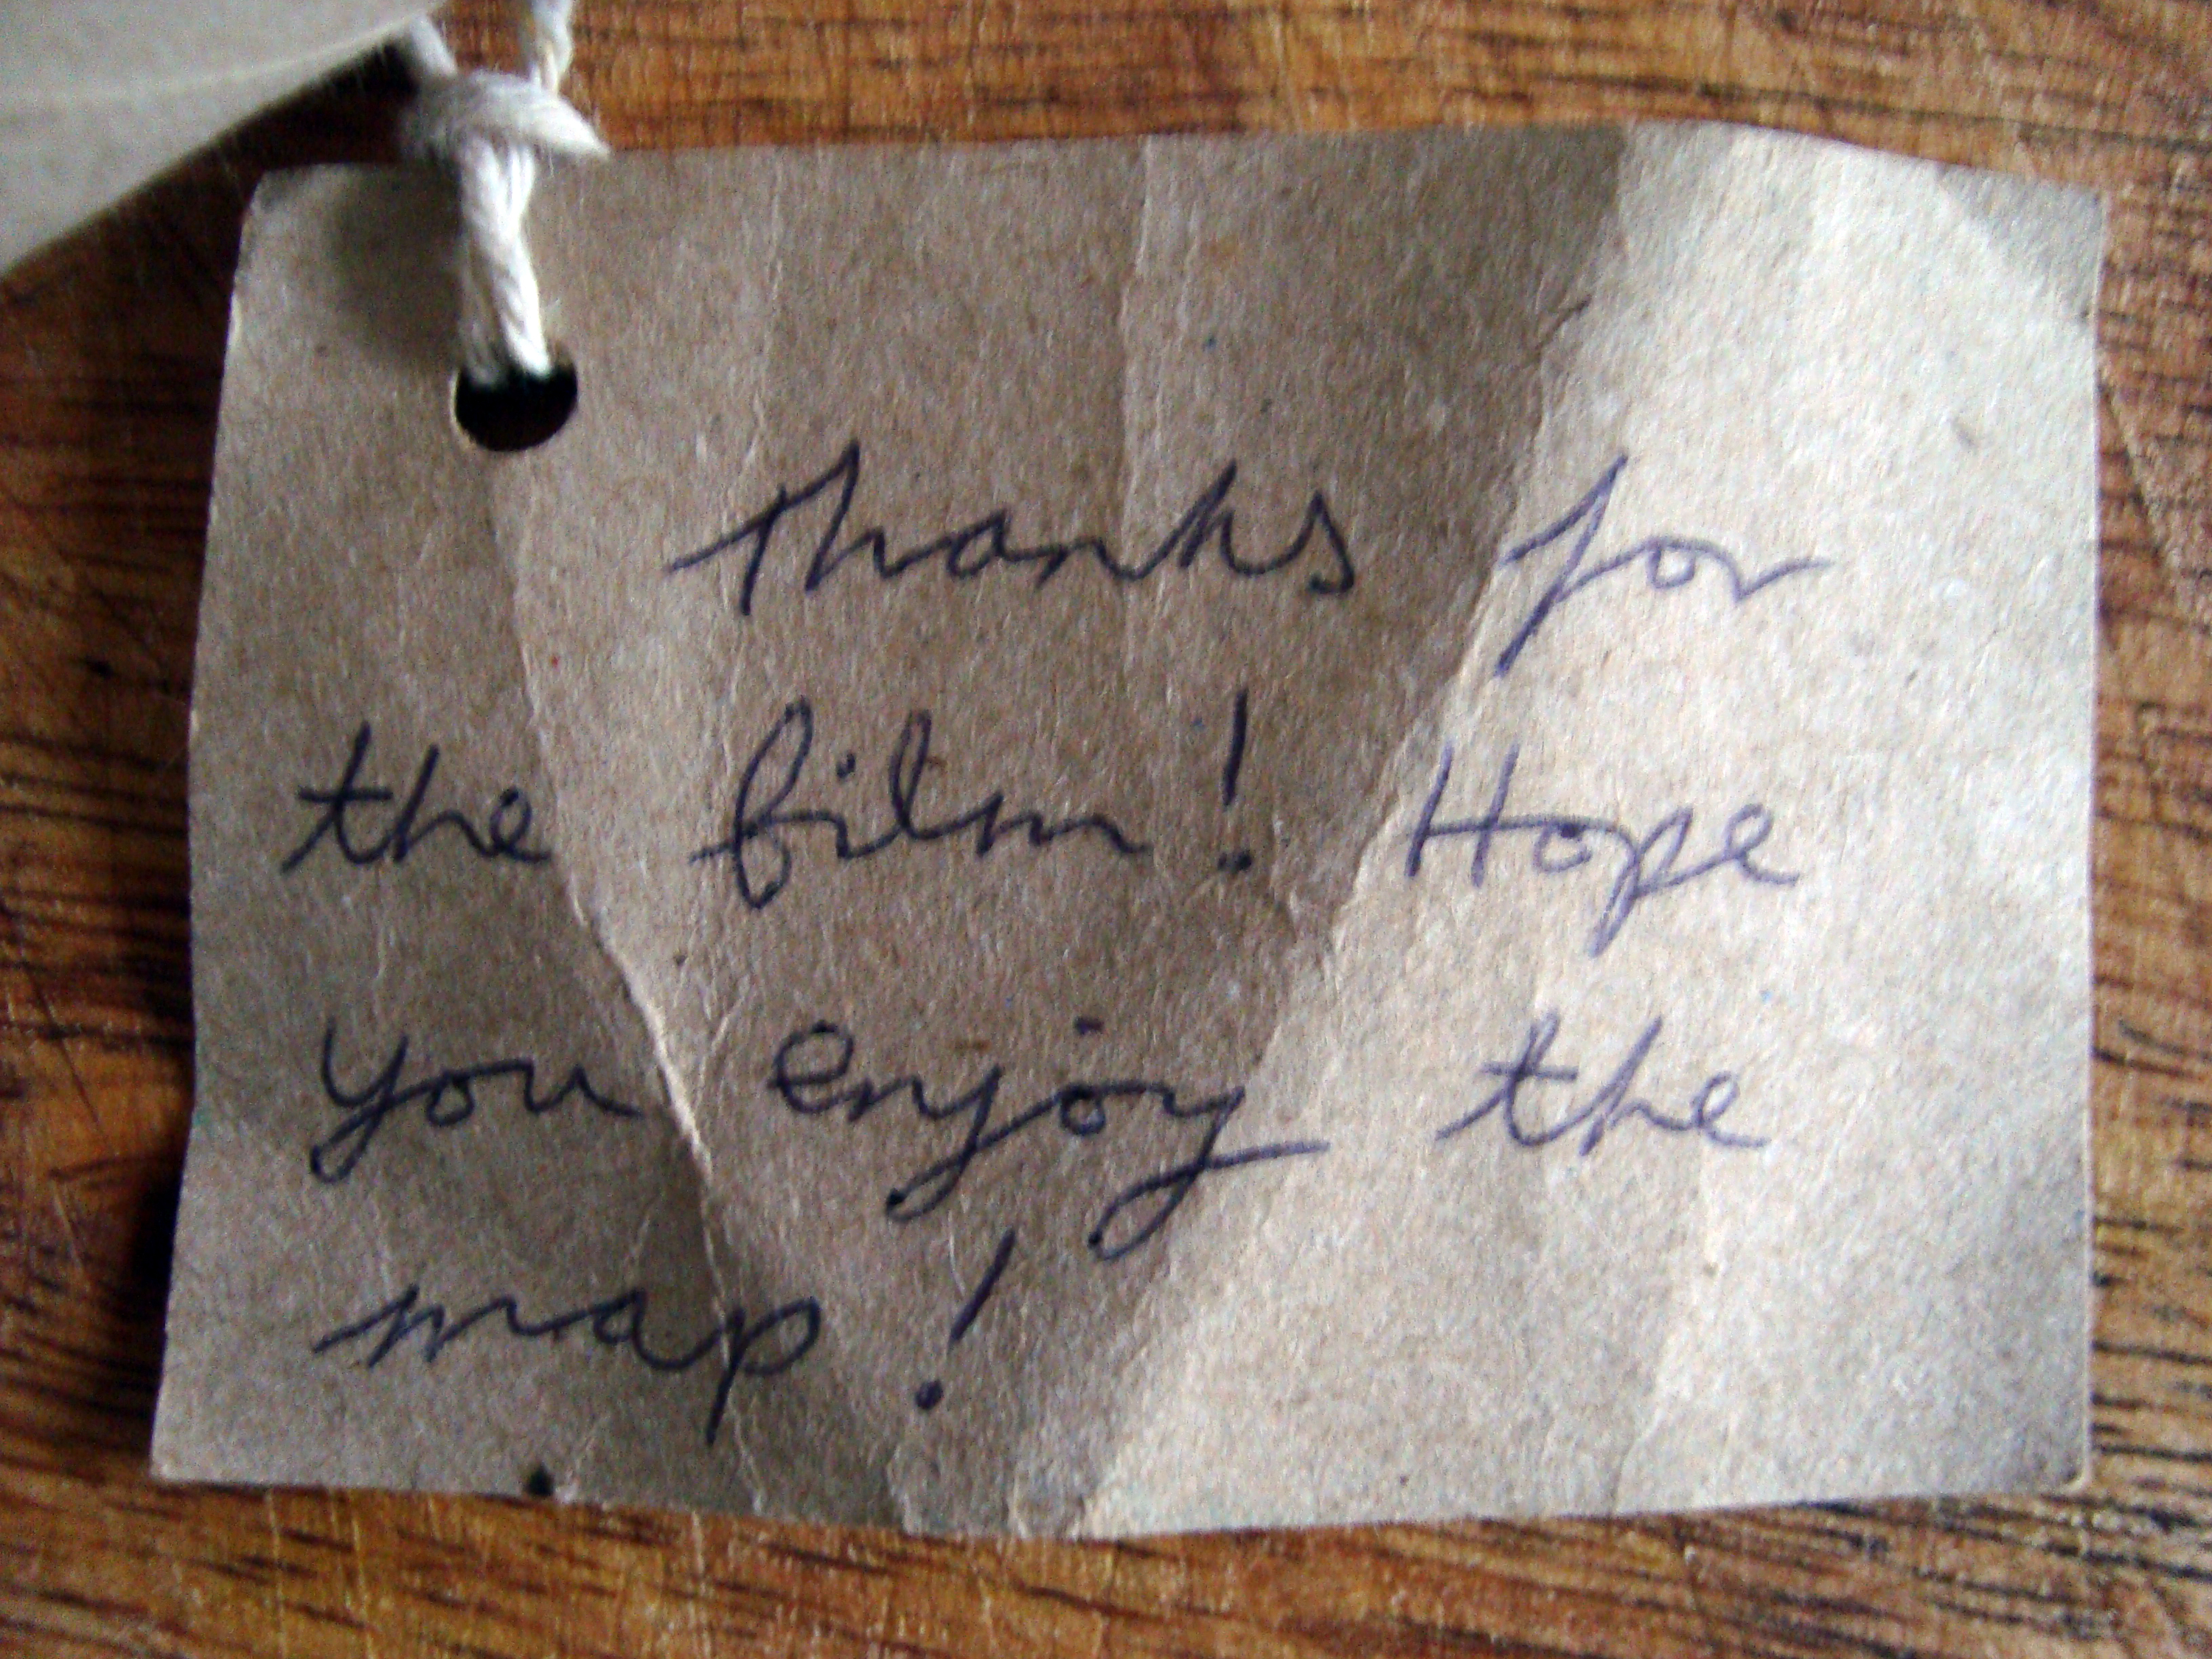 thanks for
the film! Hope
you enjoy the
map!